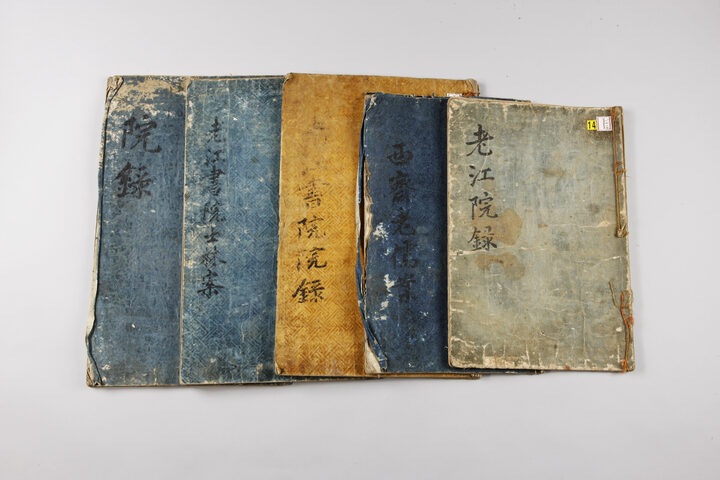 院錄
老江書院士林案
書院院錄
西齋老儒案
老江院錄
14